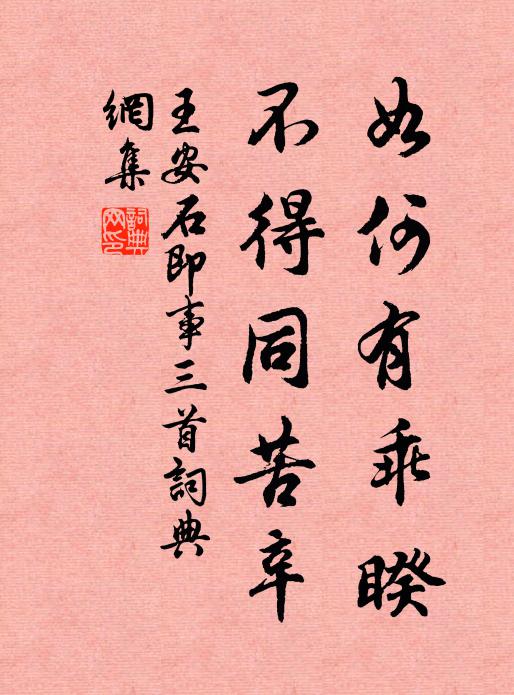 如何有乖睽
不得同苦辛
王安石即事三首詞典
網集
詞典
網印